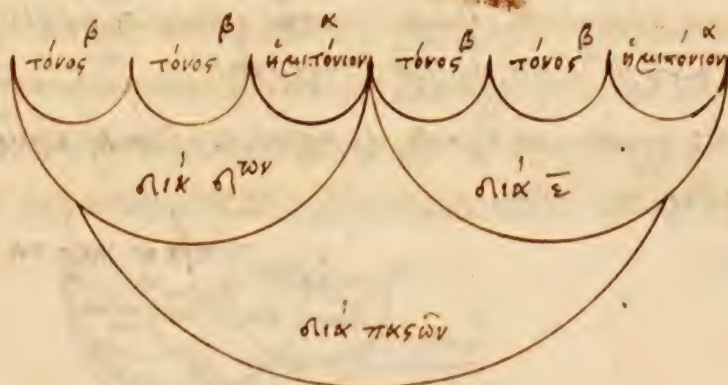 β β α β β α
τόνος τόνος ἡμιτόνιον τόνος τόνος ἡμιτόνιον
διὰ δ^ων
διὰ ε̅
διὰ πασῶν